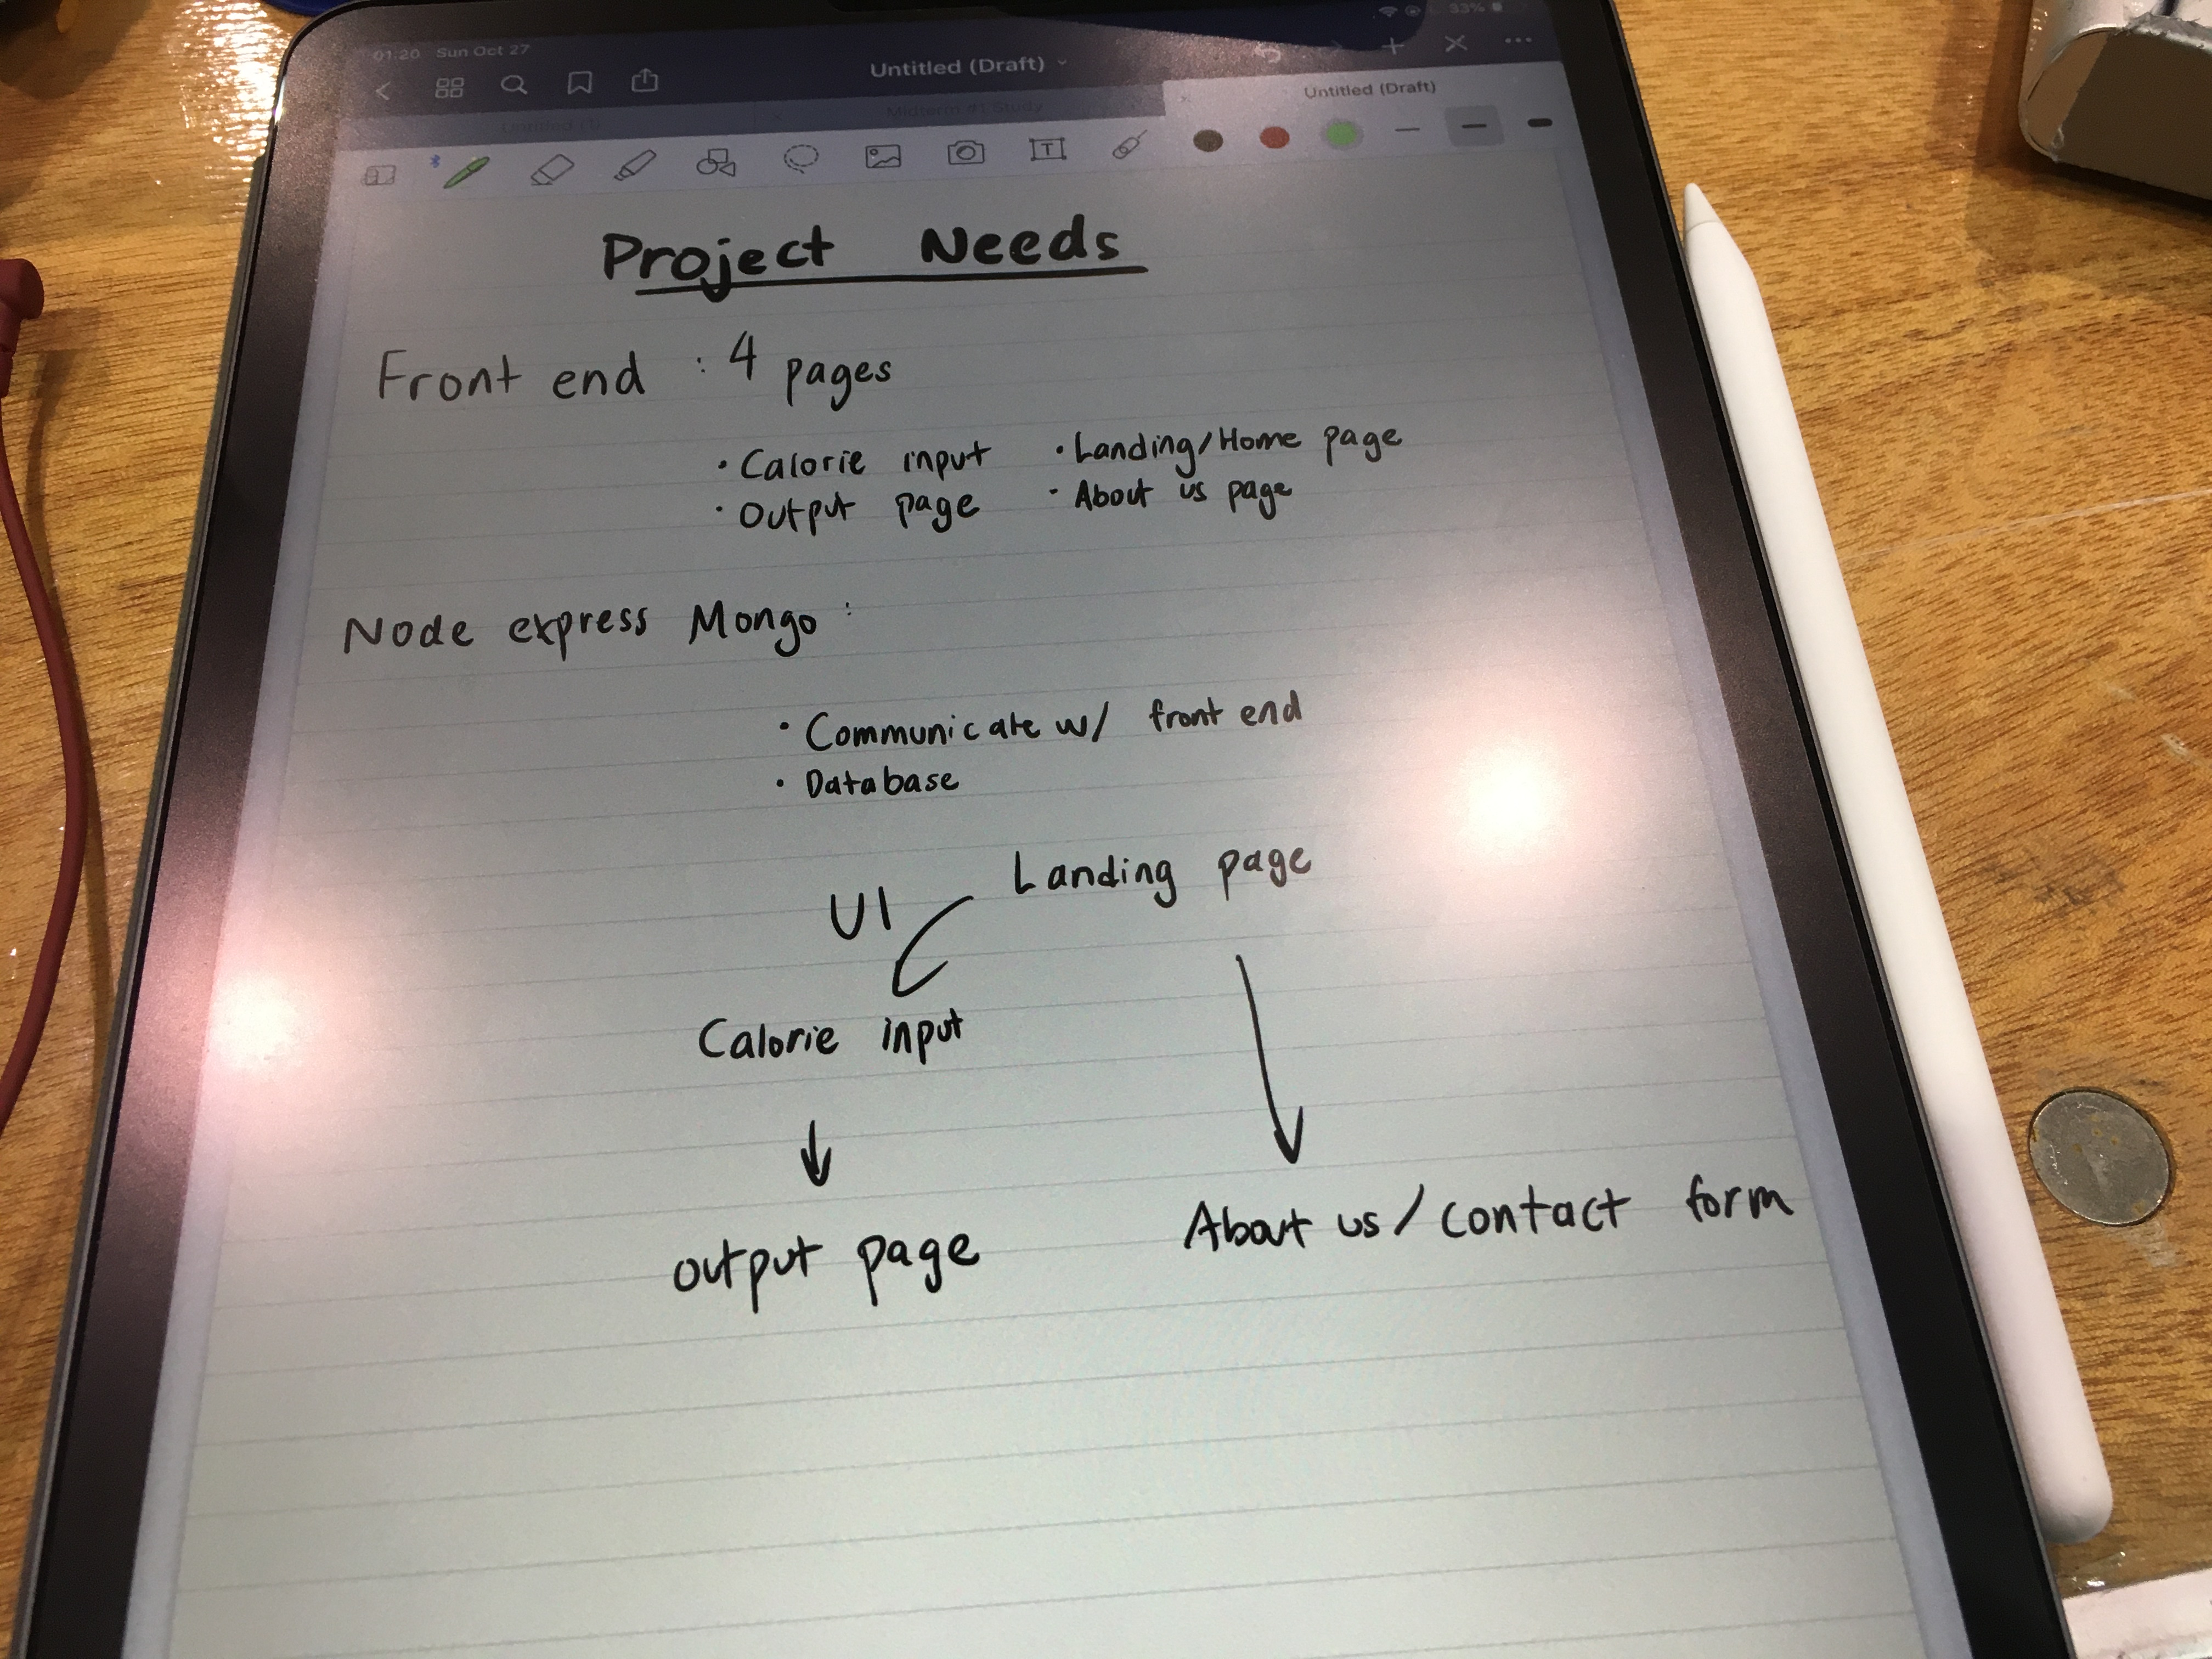 01:20 Sun Oct 27
33%
Untitled (Draft)
Midterm #1 Study
Untitled (Draft)
Project Needs
Front end : 4 pages
· Calorie input · Landing/Home page
· Output page · About us page
Node express Mongo :
· Communicate w/ front end
· Database
UI
Landing page
Calorie input
output page
About us / contact form